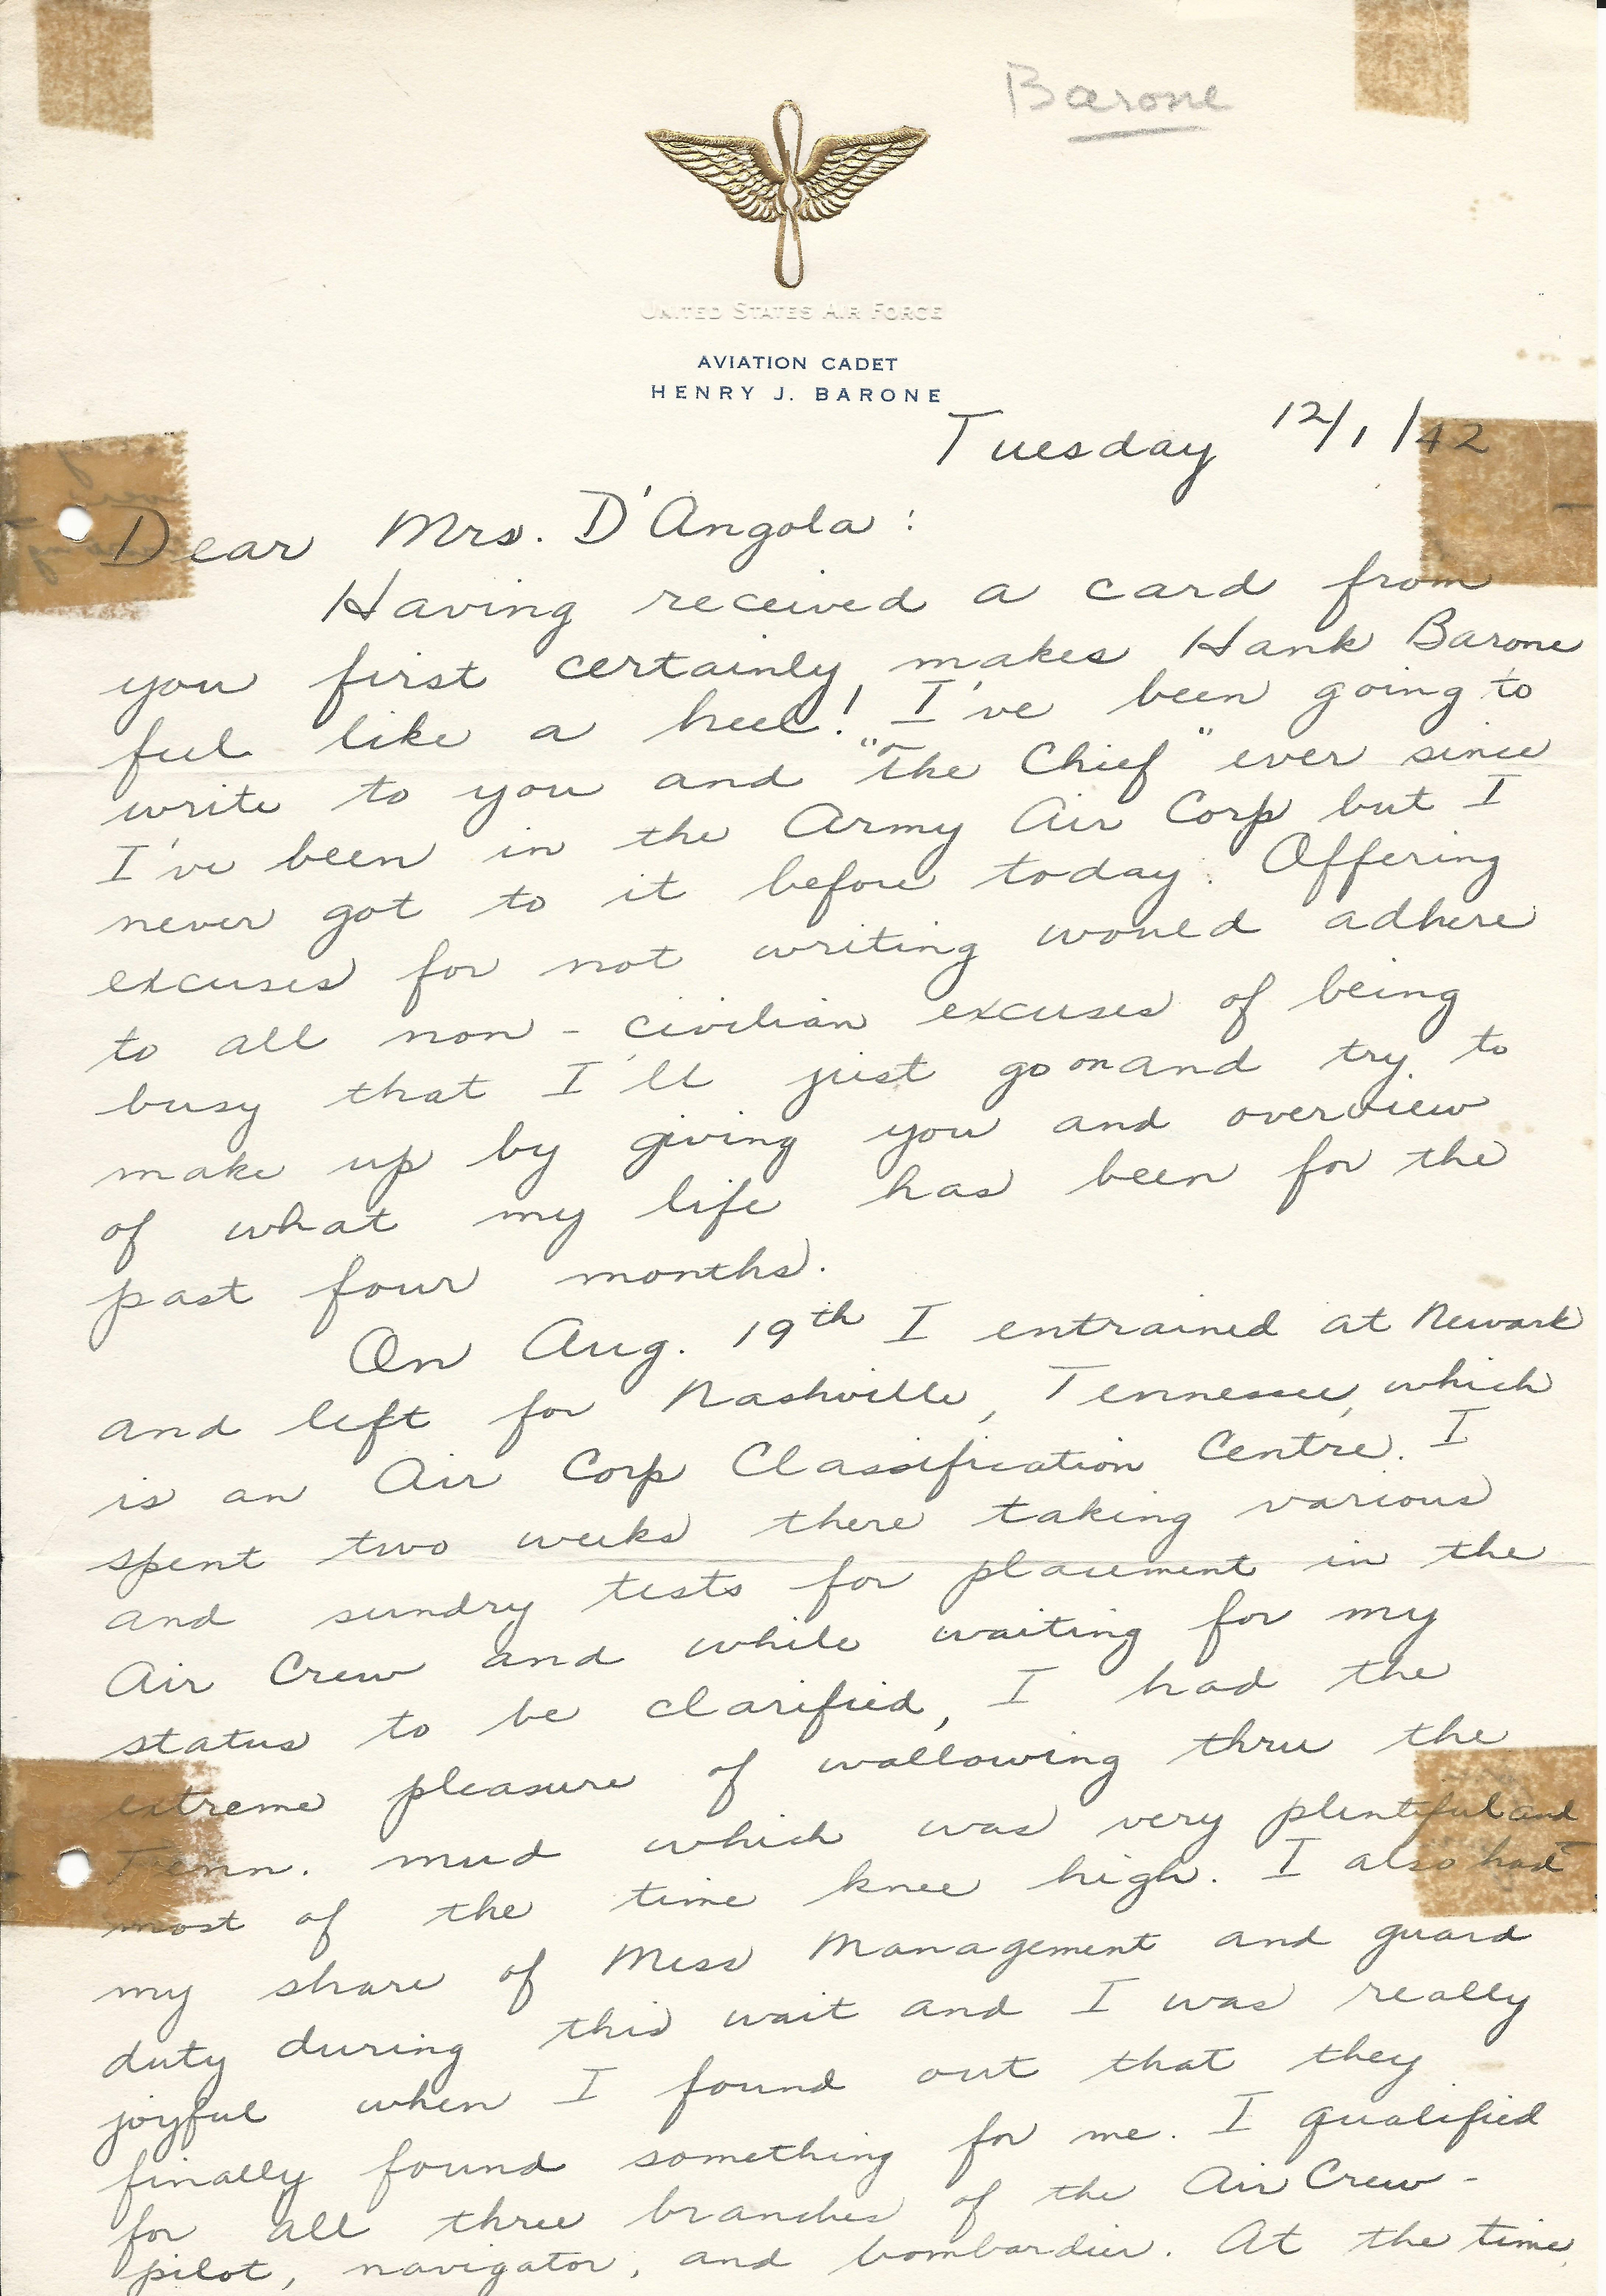 Barone
UNITED STATES AIR FORCE
AVIATION CADET
HENRY J. BARONE
Tuesday 12/1/42
Dear Mrs. D'Angola:
Having received a card from
you first certainly makes Hank Barone
feel like a heel! I've been going to
write to you and "The Chief" ever since
I've been in the Army Air Corp but I
never got to it before today. Offering
excuses for not writing would adhere
to all non-civilian excuses of being
busy that I'll just go on and try to
make up by giving you and overview
of what my life has been for the
past four months.
On Aug. 19th I entrained at Newark
and left for Nashville, Tennessee, which
is an Air Corp Classification Centre. I
spent two weeks there taking various
and sundry tests for placement in the
Air Crew and while waiting for my
status to be clarified, I had the
extreme pleasure of wallowing thru the
Tenn. mud which was very plentiful and
most of the time knee high. I also had
my share of Mess Management and guard
duty during this wait and I was really
joyful when I found out that they
finally found something for me. I qualified
for all three branches of the Air Crew -
pilot, navigator, and bombardier. At the time,